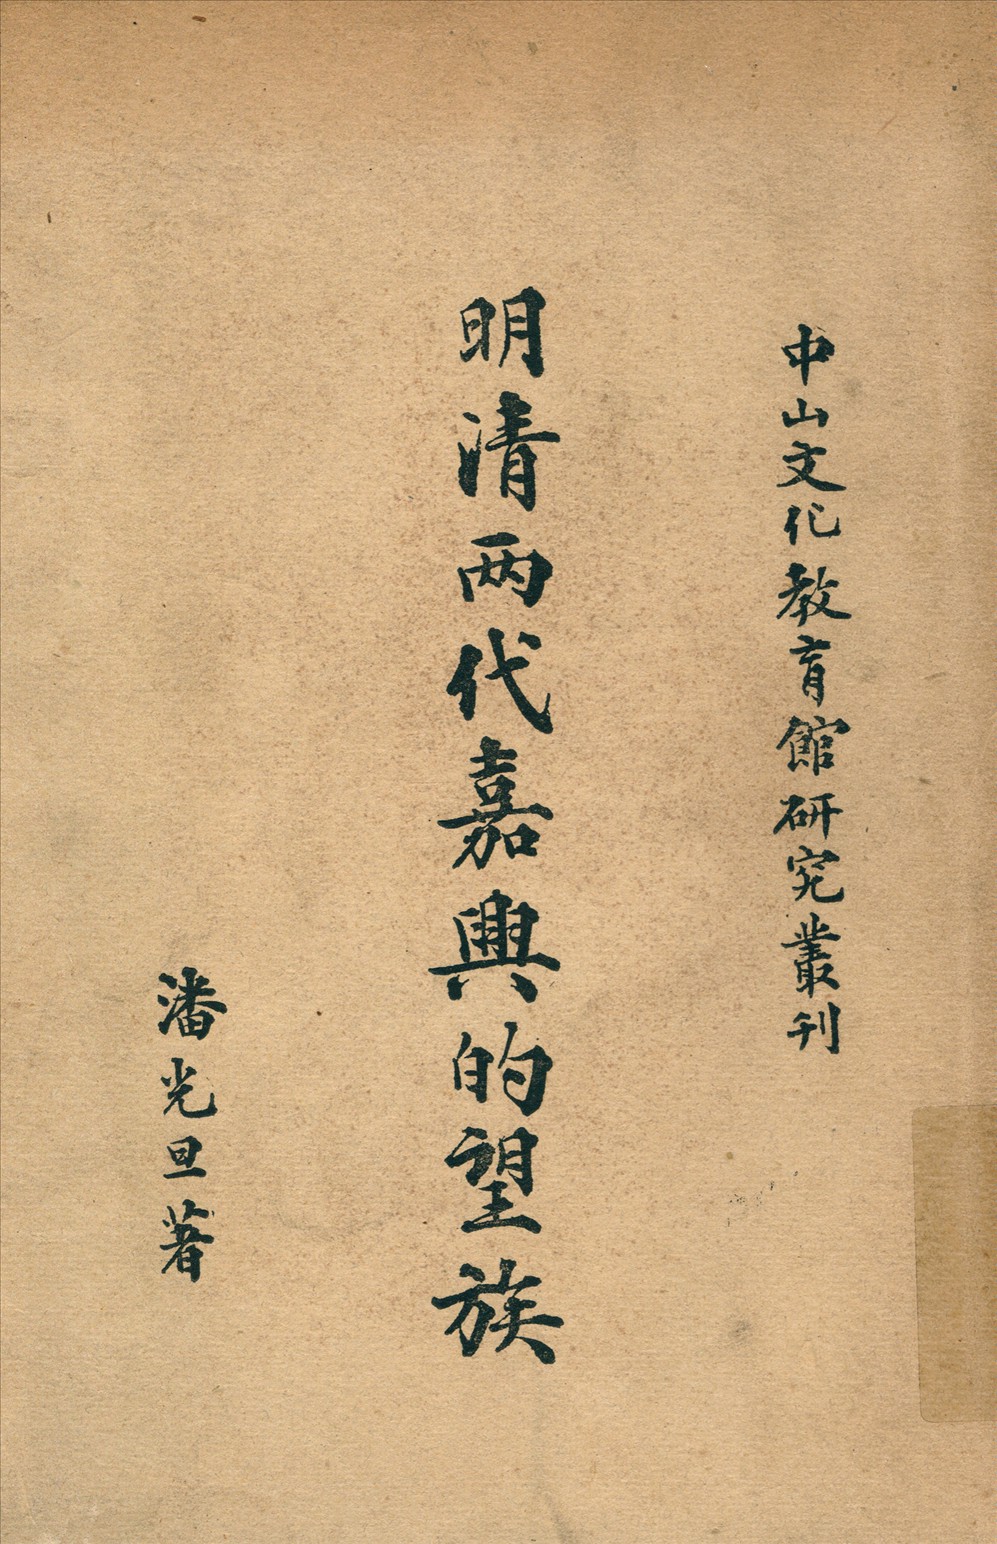 中山文化教育館研究叢刊
明清两代嘉興的望族
潘光旦著